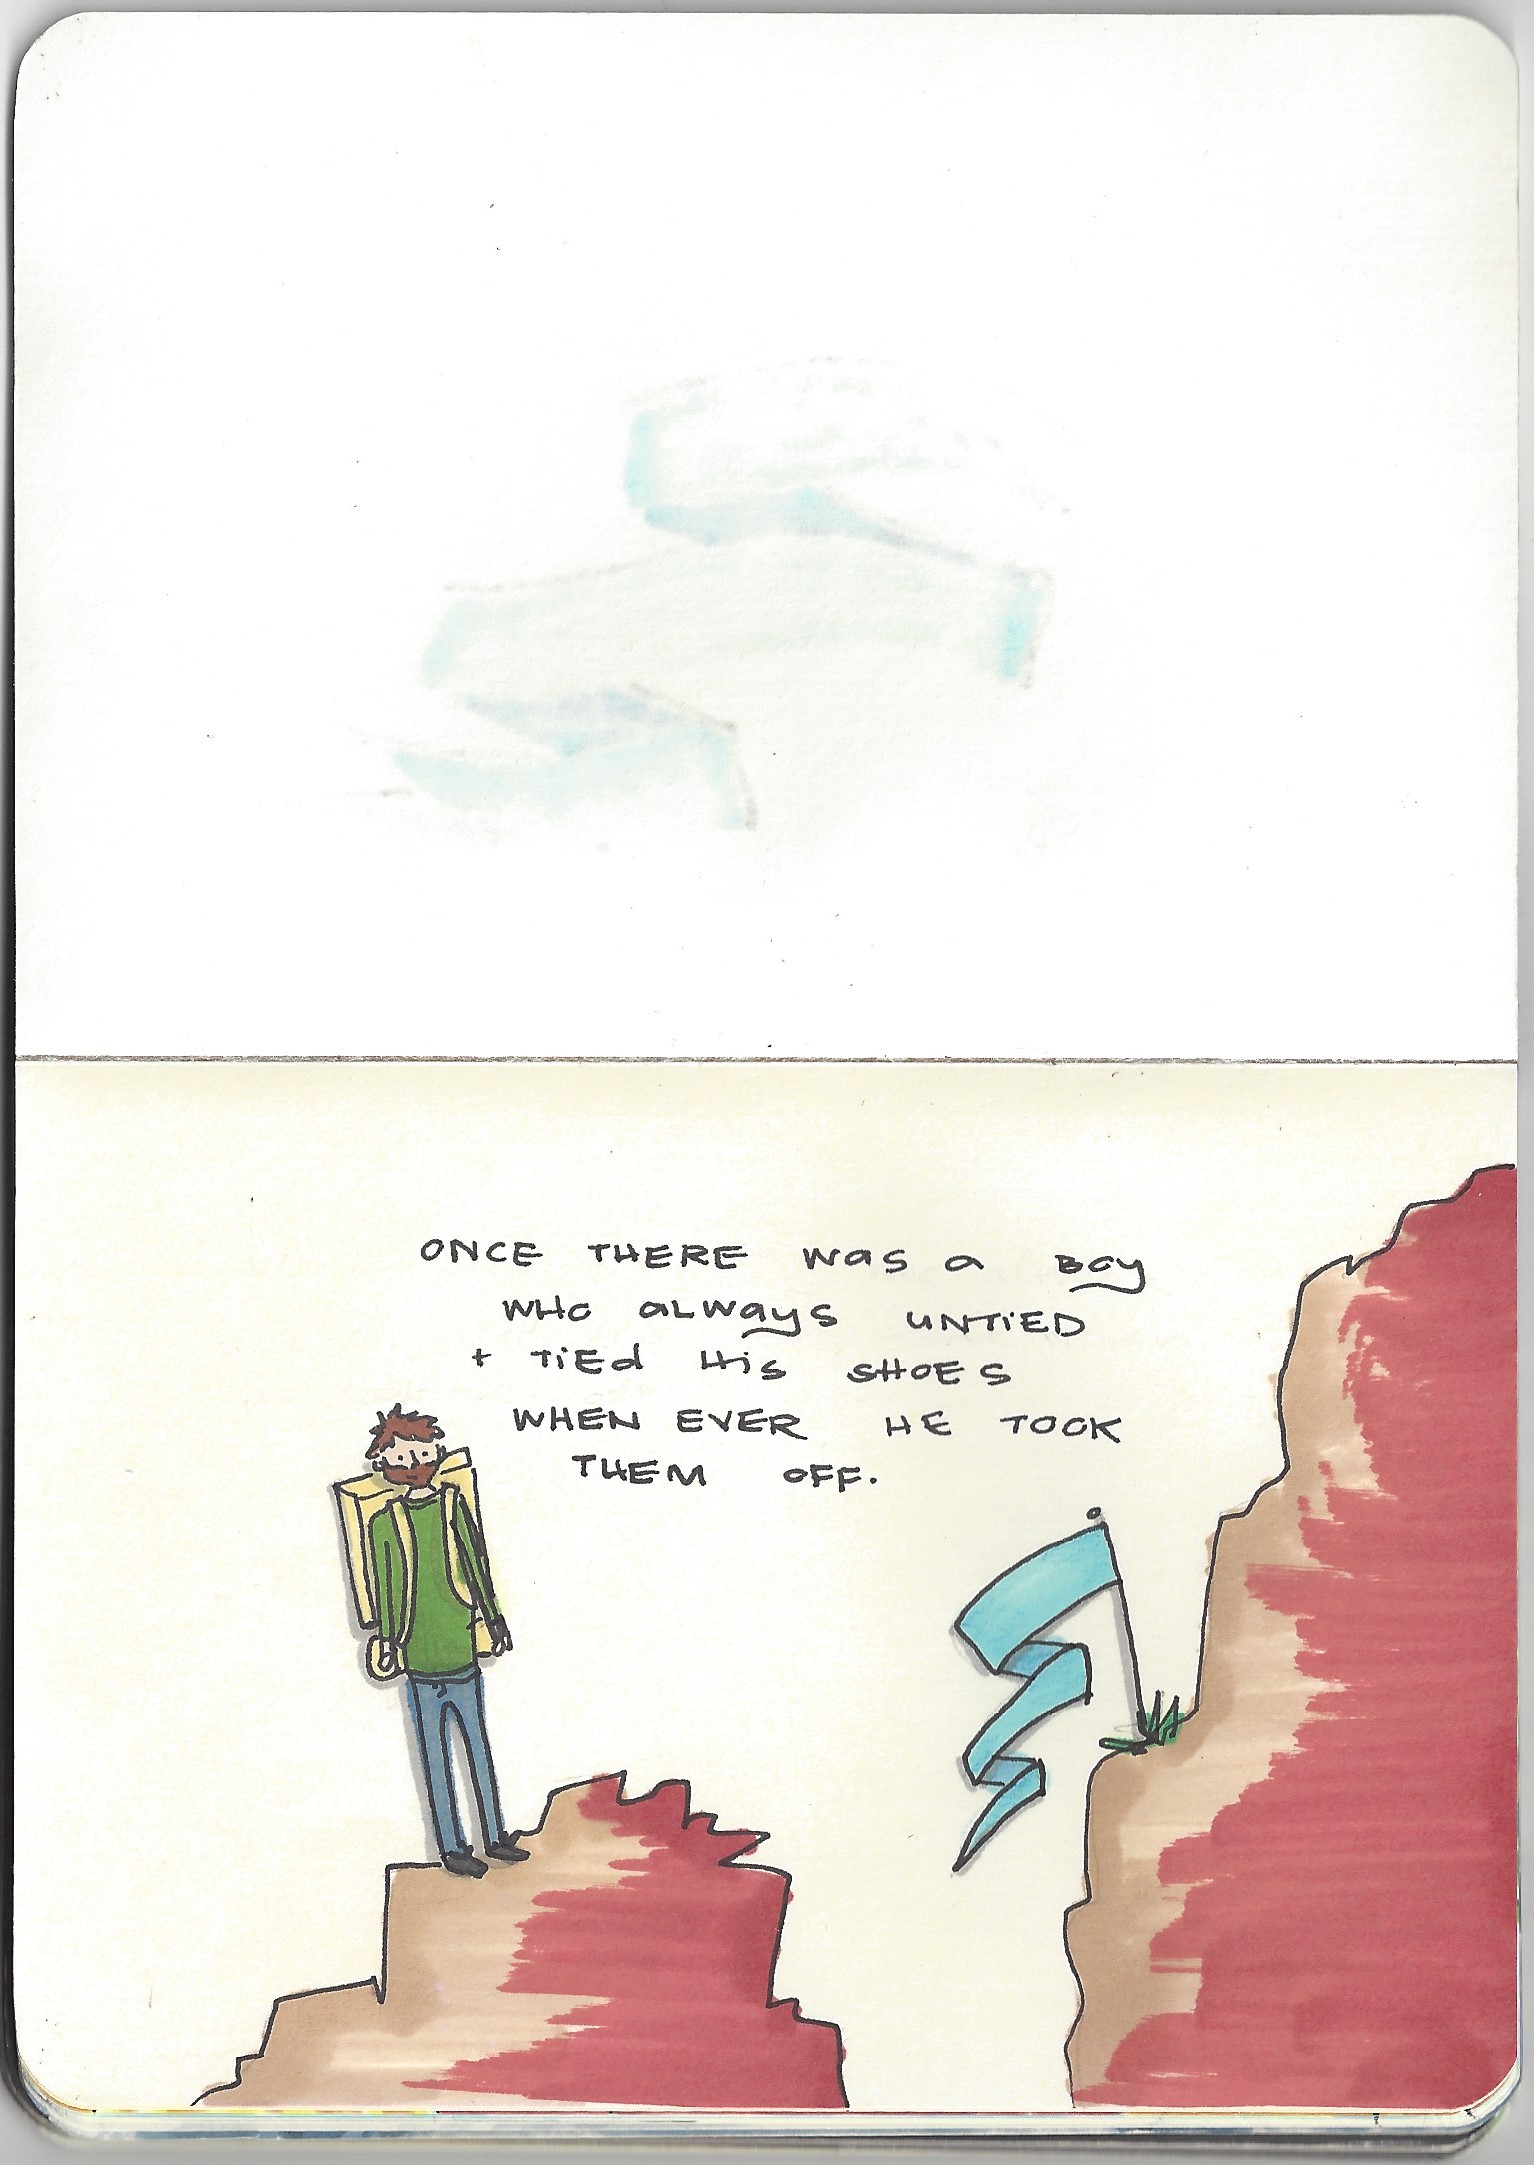 ONCE THERE was a BOY
WHO always UNTIED
+ TiEd His SHOES
WHEN EVER HE TOOK
THEM OFF.